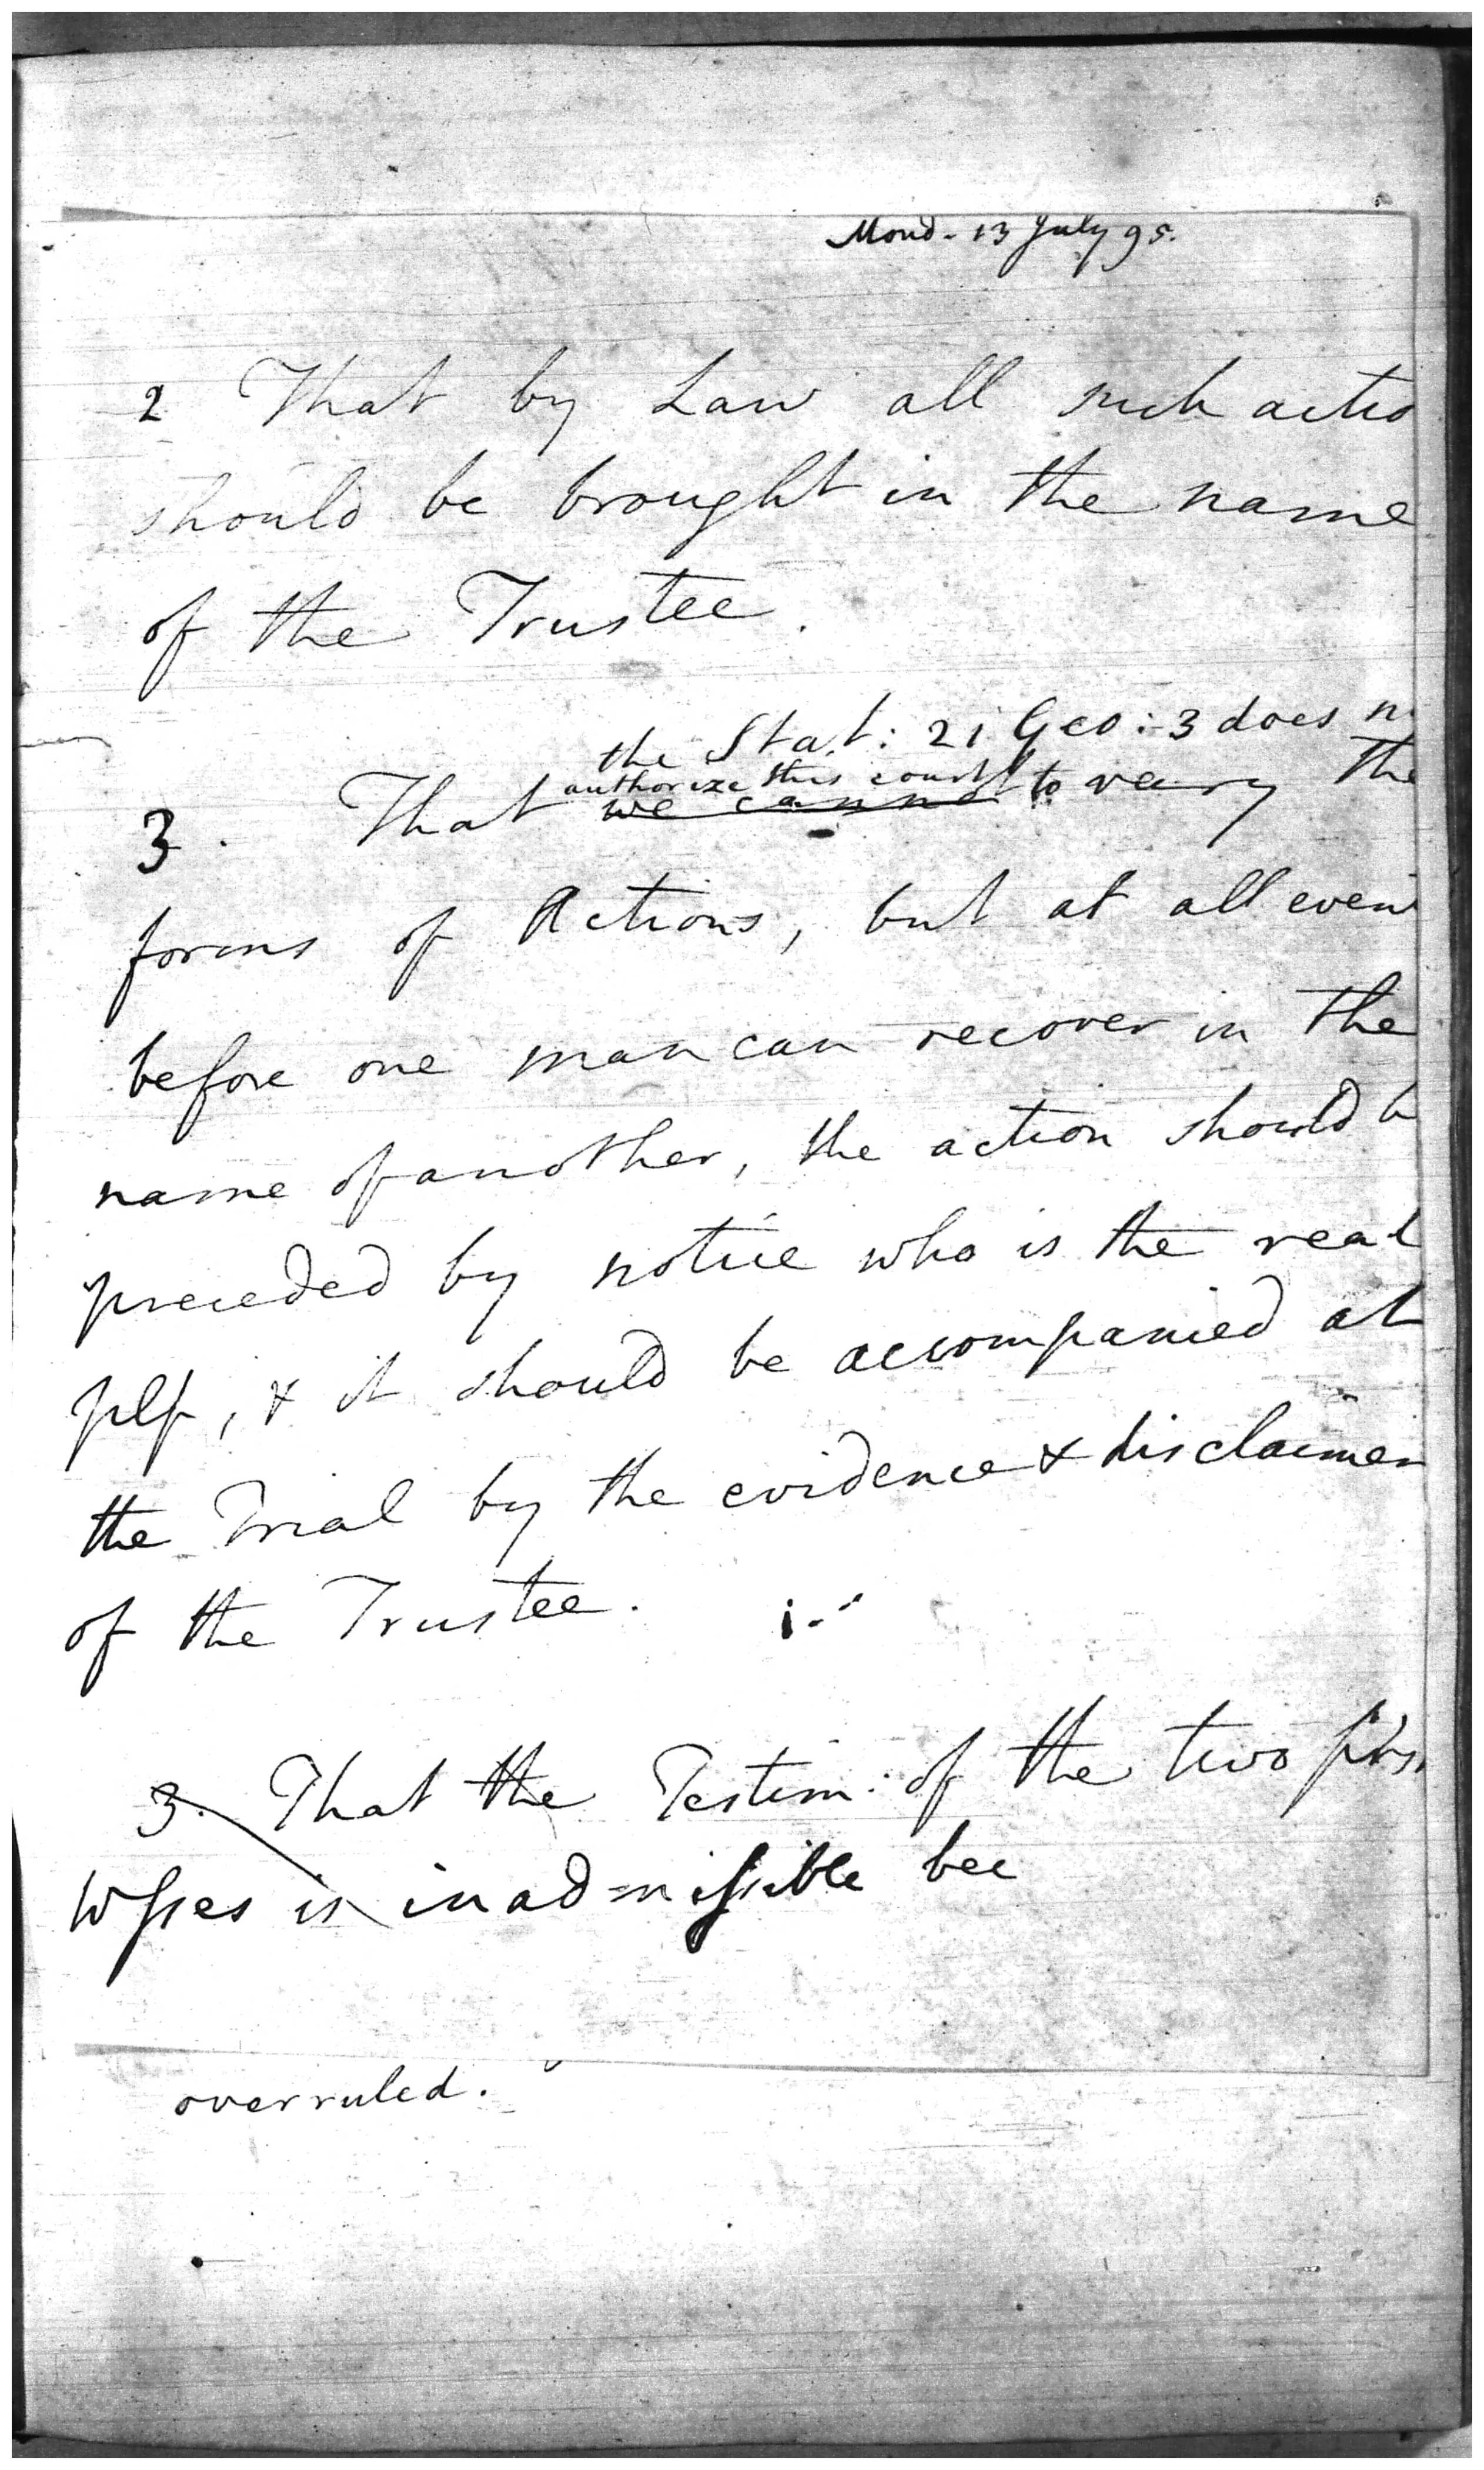 Mond. 13 July 95.
2 That by Law all such actio
should be brought in the name
of the Trustee.
the Stat: 21 Geo: 3 does n
authorize this court
3. That we cannot to vary the
forms of Actions, but at all even
before one man can recover in the
name of another, the action should b
preceded by notice who is the real
plf, & it should be accompanied at
the Trial by the evidence & disclaimer
of the Trustee.
3. That the Testim: of the two firs
Wsses is inadmissible bec
overruled.